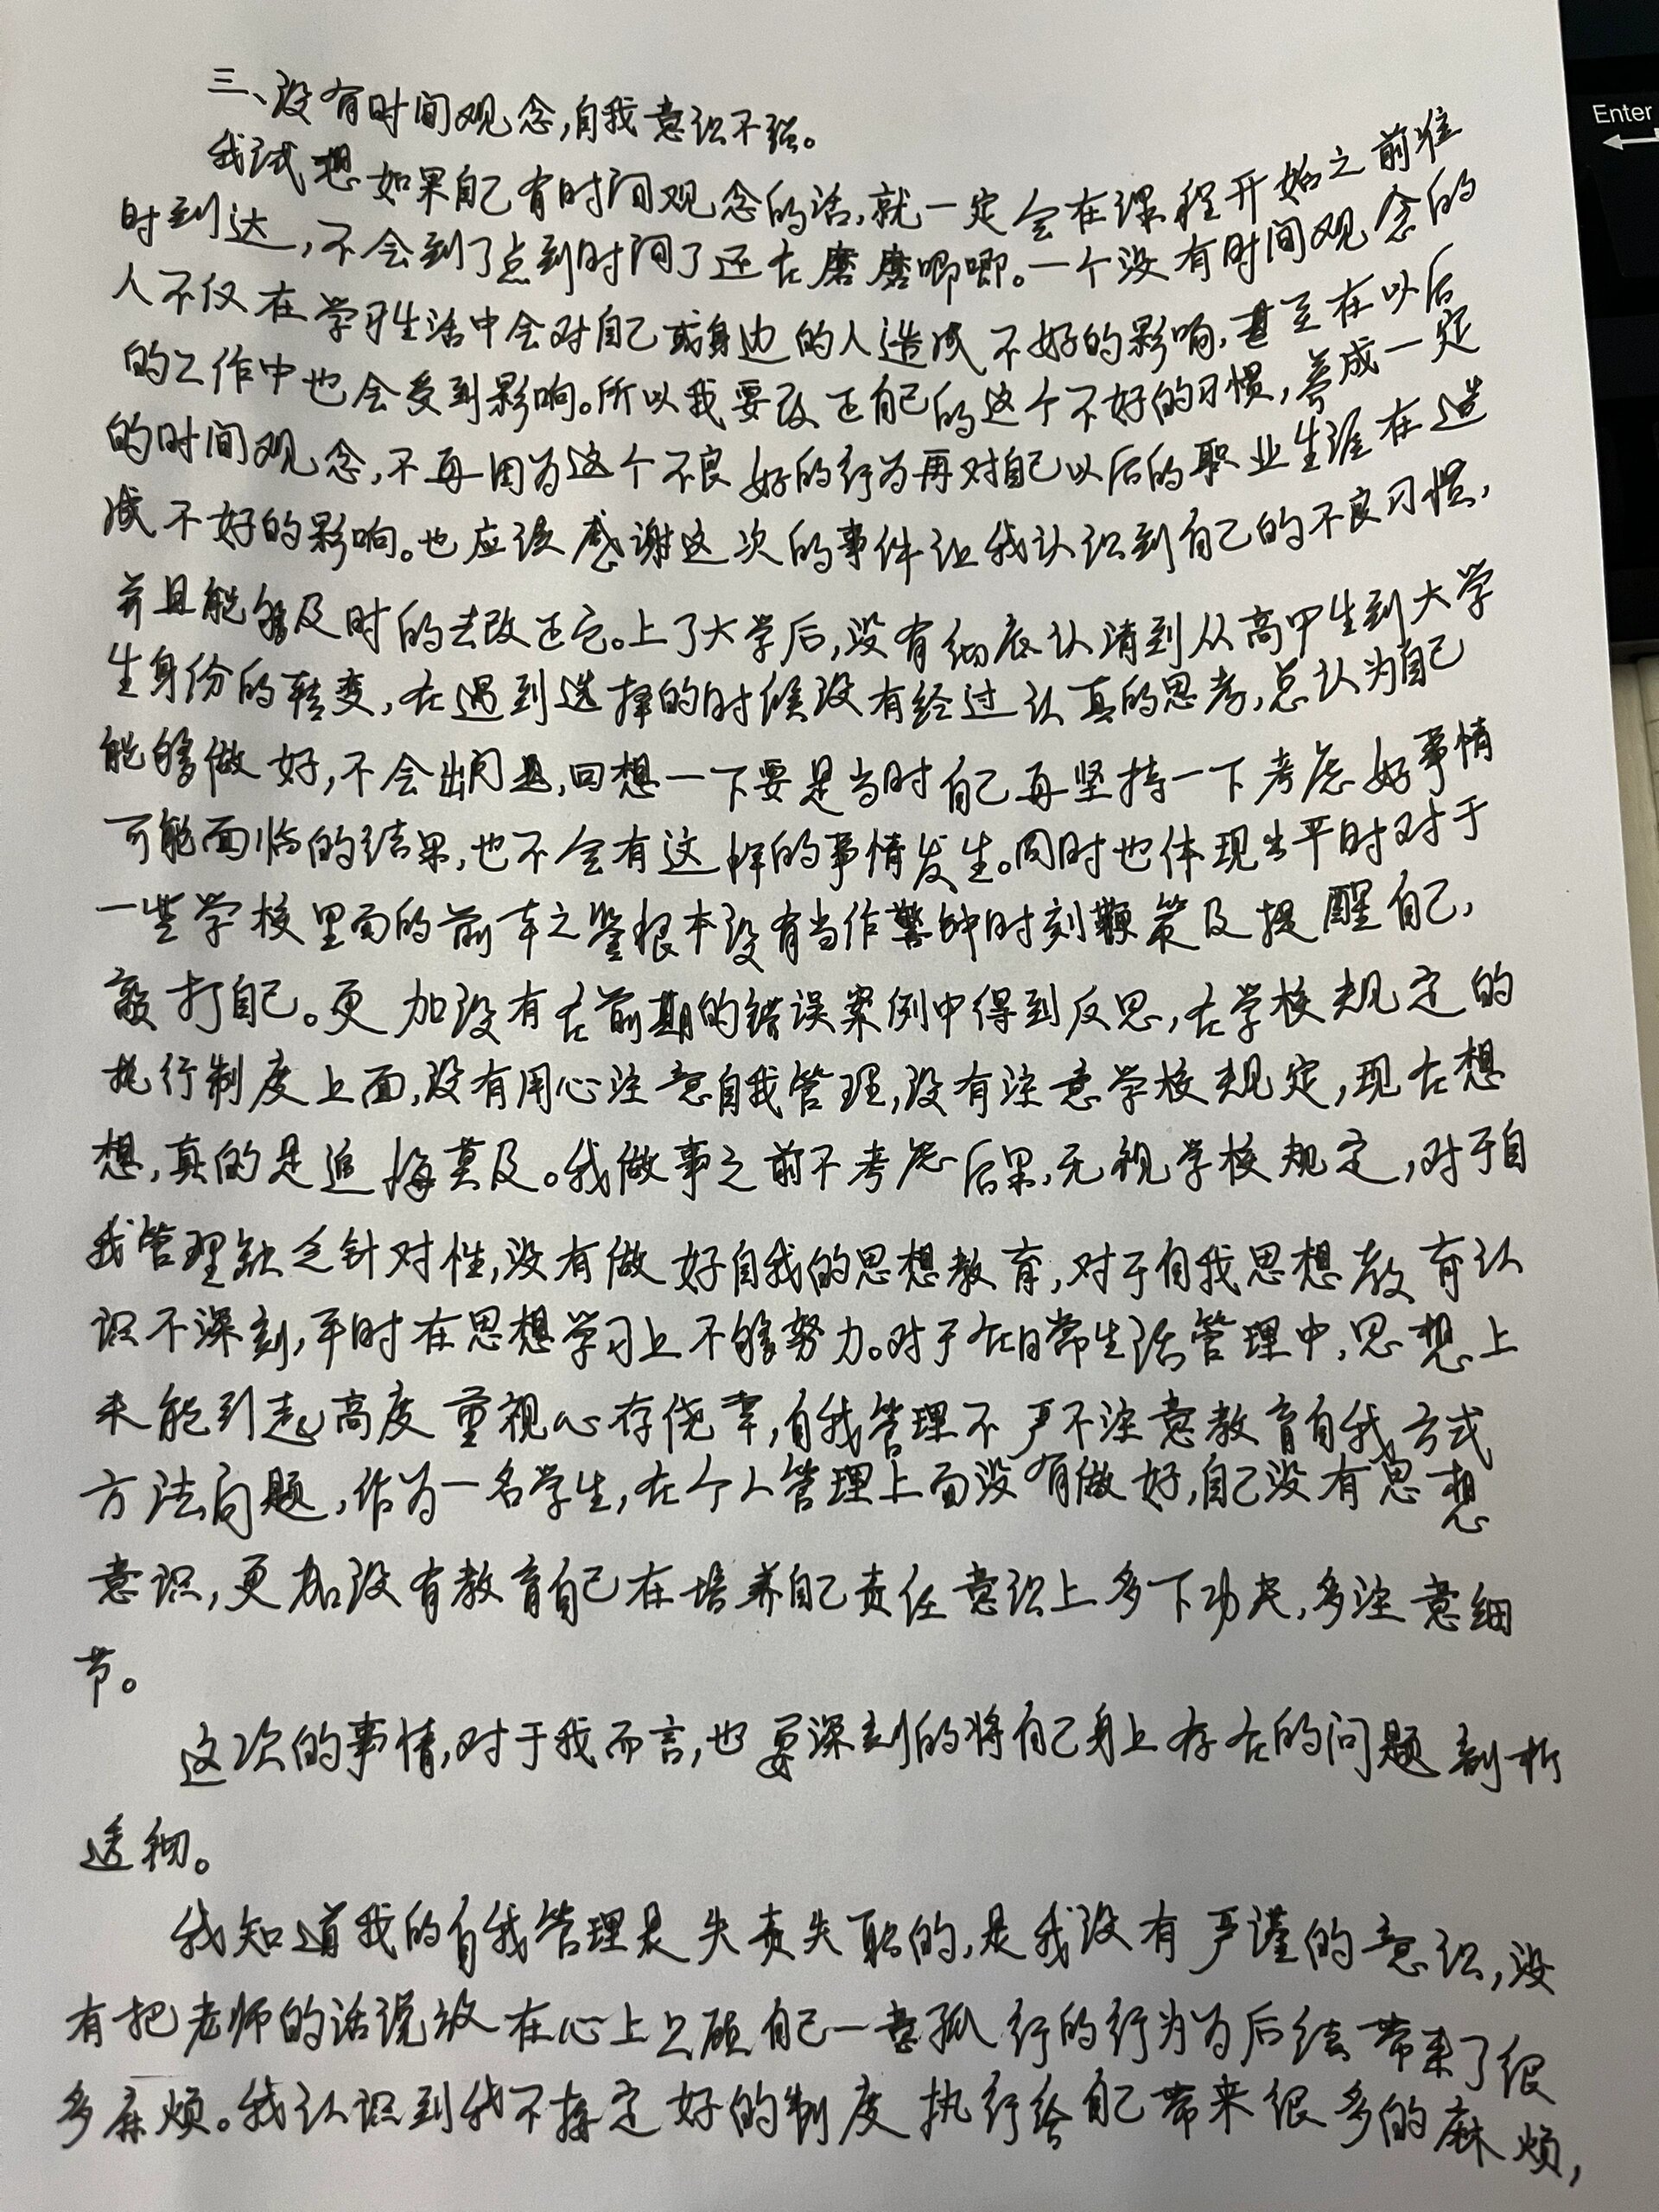 三、没有时间观念,自我意识不强。
我试想如果自己有时间观念的话,就一定会在课程开始之前准
时到达,不会到了点到时间了还在磨磨唧唧。一个没有时间观念的
人不仅在学习生活中会对自己或身边的人造成不好的影响,甚至在以后
的工作中也会受到影响。所以我要改正自己的这个不好的习惯,养成一定
的时间观念,不再因为这个不良好的行为再对自己以后的职业生涯在造
成不好的影响。也应该感谢这次的事件让我认识到自己的不良习惯,
并且能够及时的去改正它。上了大学后,没有彻底认清到从高中生到大学
生身份的转变,在遇到选择的时候没有经过认真的思考,总认为自己
能够做好,不会出问题,回想一下要是当时自己再坚持一下考虑好事情
可能面临的结果,也不会有这样的事情发生。同时也体现出平时对于
一些学校里面的前车之鉴根本没有当作警钟时刻鞭策及提醒自己,
敲打自己。更加没有在前期的错误案例中得到反思,在学校规定的
执行制度上面,没有用心注意自我管理,没有注意学校规定,现在想
想,真的是追悔莫及。我做事之前不考虑后果,无视学校规定,对于自
我管理缺乏针对性,没有做好自我的思想教育,对于自我思想教育认
识不深刻,平时在思想学习上不够努力。对于在日常生活管理中,思想上
未能引起高度重视心存侥幸,自我管理不严不注意教育自我方式
方法问题,作为一名学生,在个人管理上面没有做好,自己没有思想
意识,更加没有教育自己在培养自己责任意识上多下功夫,多注意细
节。
这次的事情,对于我而言,也要深刻的将自己身上存在的问题剖析
透彻。
我知道我的自我管理是失责失职的,是我没有严谨的意识,没
有把老师的话语放在心上只顾自己一意孤行的行为为后续带来了很
多麻烦。我认识到我不按定好的制度执行给自己带来很多的麻烦,
Enter